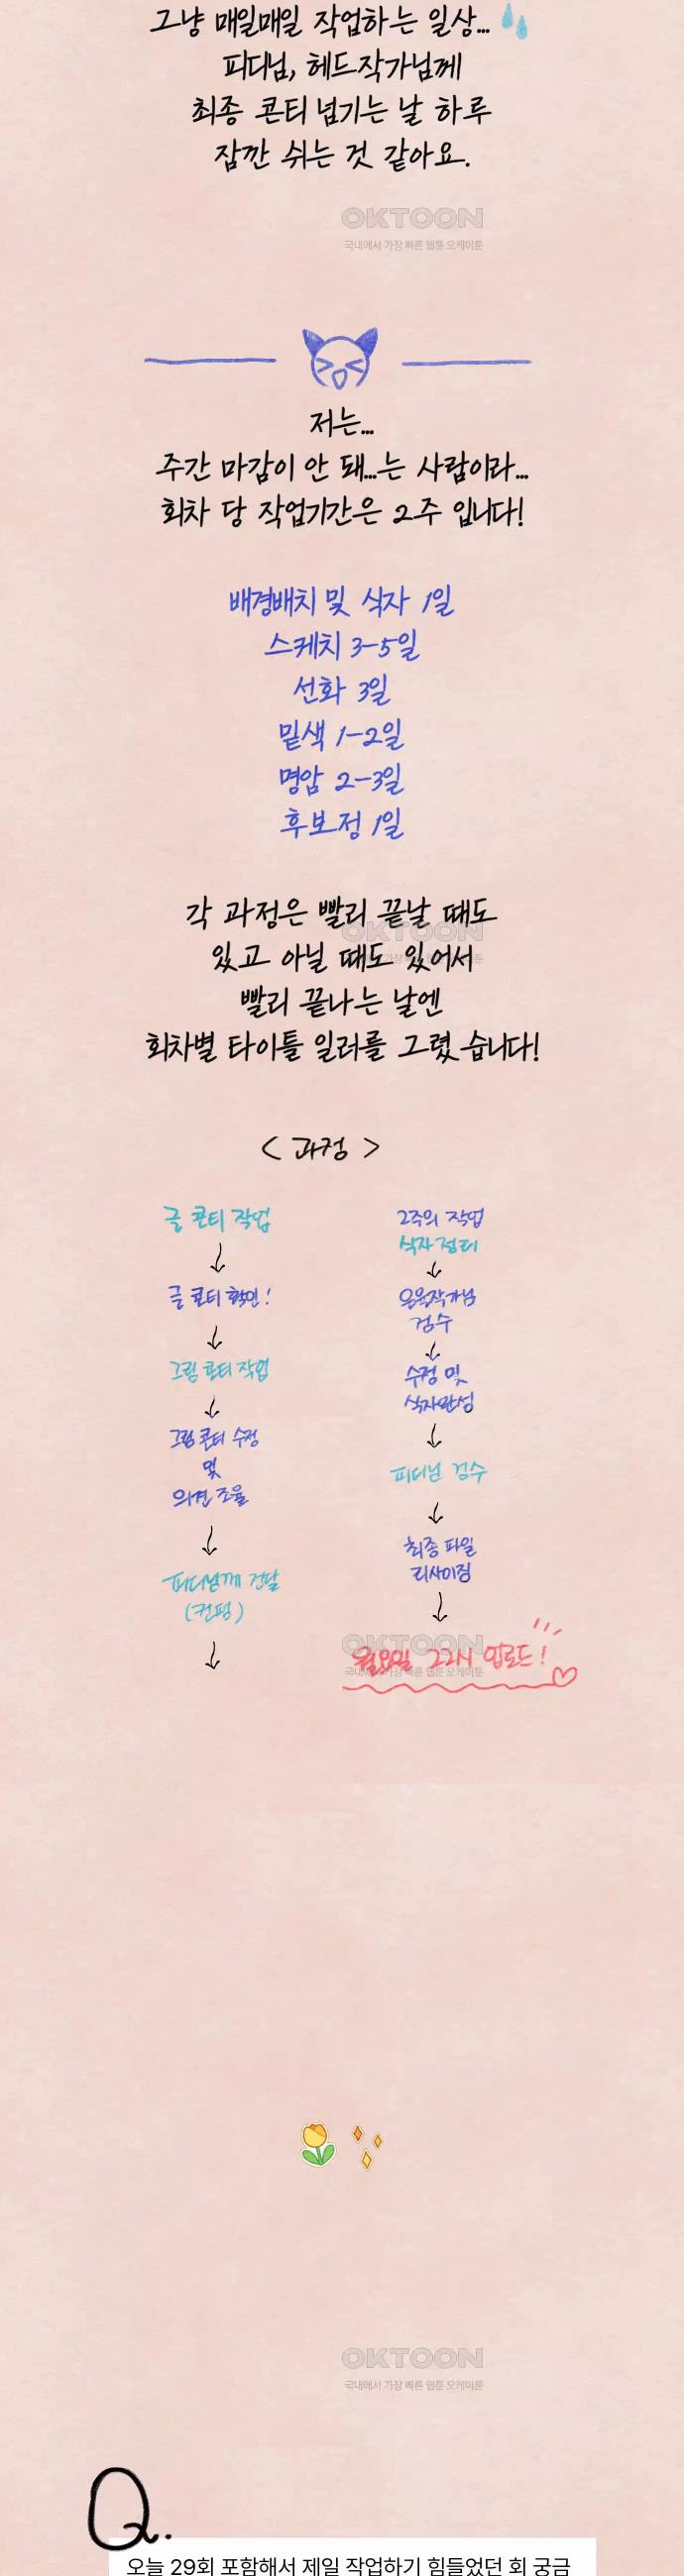 그냥 매일매일 작업하는 일상...
피디님, 헤드작가님께
최종 콘티 넘기는 날 하루
잠깐 쉬는 것 같아요.
OKTOON
국내에서 가장 빠른 웹툰 오케이툰
저는...
주간 마감이 안 돼...는 사람이라...
회차 당 작업기간은 2주 입니다!
배경배치 및 식자 1일
스케치 3-5일
선화 3일
밑색 1-2일
명암 2-3일
후보정 1일
각 과정은 빨리 끝날 때도
OKTOON
있고 아닐 때도 있어서
빨리 끝나는 날엔
회차별 타이틀 일러를 그렸습니다!
< 과정 >
글 콘티 작업
글 콘티 확인!
그림 콘티 작업
그림 콘티 수정
및
의견 조율
피디님께 전달
(컨펌)
2주의 작업
식자 정리
검수
수정 및
식자완성
피디님 검수
최종 파일
리사이징
OKTOON
월요일 22시 업로드!
OKTOON
국내에서 가장 빠른 웹툰 오케이툰
Q.
오늘 29회 포함해서 제일 작업하기 힘들었던 회 궁금